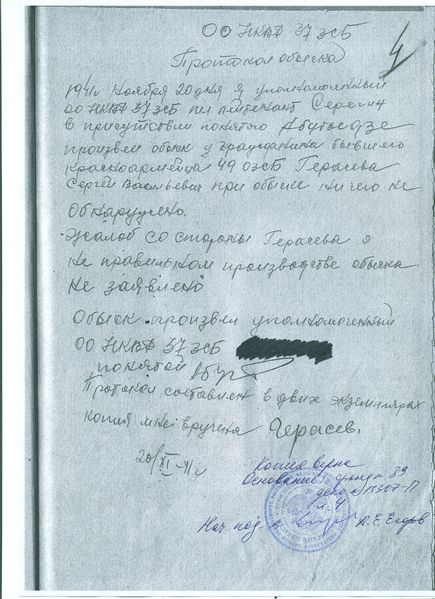 ОО НКВД 37 ЗСБ
4
Протокол обыска
1941 ноября 20 дня я уполномоченный
ОО НКВД 37 ЗСБ мл лейтенант Серегин
в присутствии понятого
произвел обыск у гражданина бывшего
красноармейца 49 ОЗСБ Герасева
Сергей Васильевич при обыске ни чего не
обнаружено.
Жалоб со стороны Герасева о
не правильном производстве обыска
не заявлено
Обыск произвел уполномоченный
ОО НКВД 37 ЗСБ
понятой
Протокол составлен в двух экземплярах
копия мне вручена Герасев.
20/XI-41г
Копия верна
Основание: фонд 89
дело №15307-П
л. 4
Нач. под. А.Е. Егоров